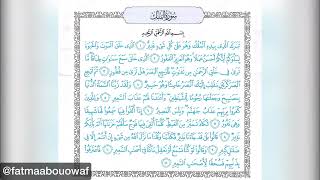 سُورَةُ المُلْكِ
بِسْمِ اللَّهِ الرَّحْمَٰنِ الرَّحِيمِ
تَبَٰرَكَ الَّذِي بِيَدِهِ الْمُلْكُ وَهُوَ عَلَىٰ كُلِّ شَيْءٍ قَدِيرٌ ١ الَّذِي خَلَقَ الْمَوْتَ وَالْحَيَوٰةَ
لِيَبْلُوَكُمْ أَيُّكُمْ أَحْسَنُ عَمَلًا وَهُوَ الْعَزِيزُ الْغَفُورُ ٢ الَّذِي خَلَقَ سَبْعَ سَمَٰوَٰتٍ طِبَاقًا مَّا
تَرَىٰ فِي خَلْقِ الرَّحْمَٰنِ مِن تَفَٰوُتٍ فَارْجِعِ الْبَصَرَ هَلْ تَرَىٰ مِن فُطُورٍ ٣ ثُمَّ ارْجِعِ
الْبَصَرَ كَرَّتَيْنِ يَنقَلِبْ إِلَيْكَ الْبَصَرُ خَاسِئًا وَهُوَ حَسِيرٌ ٤ وَلَقَدْ زَيَّنَّا السَّمَاءَ الدُّنْيَا
بِمَصَٰبِيحَ وَجَعَلْنَٰهَا رُجُومًا لِّلشَّيَٰطِينِ وَأَعْتَدْنَا لَهُمْ عَذَابَ السَّعِيرِ ٥ وَلِلَّذِينَ
كَفَرُوا بِرَبِّهِمْ عَذَابُ جَهَنَّمَ وَبِئْسَ الْمَصِيرُ ٦ إِذَا أُلْقُوا فِيهَا سَمِعُوا لَهَا شَهِيقًا
وَهِيَ تَفُورُ ٧ تَكَادُ تَمَيَّزُ مِنَ الْغَيْظِ كُلَّمَا أُلْقِيَ فِيهَا فَوْجٌ سَأَلَهُمْ خَزَنَتُهَا أَلَمْ يَأْتِكُمْ
نَذِيرٌ ٨ قَالُوا بَلَىٰ قَدْ جَاءَنَا نَذِيرٌ فَكَذَّبْنَا وَقُلْنَا مَا نَزَّلَ اللَّهُ مِن شَيْءٍ إِنْ أَنتُمْ إِلَّا فِي
ضَلَٰلٍ كَبِيرٍ ٩ وَقَالُوا لَوْ كُنَّا نَسْمَعُ أَوْ نَعْقِلُ مَا كُنَّا فِي أَصْحَٰبِ السَّعِيرِ ١٠ فَاعْتَرَفُوا
بِذَنبِهِمْ فَسُحْقًا لِّأَصْحَٰبِ السَّعِيرِ ١١
@fatmaabouowaf